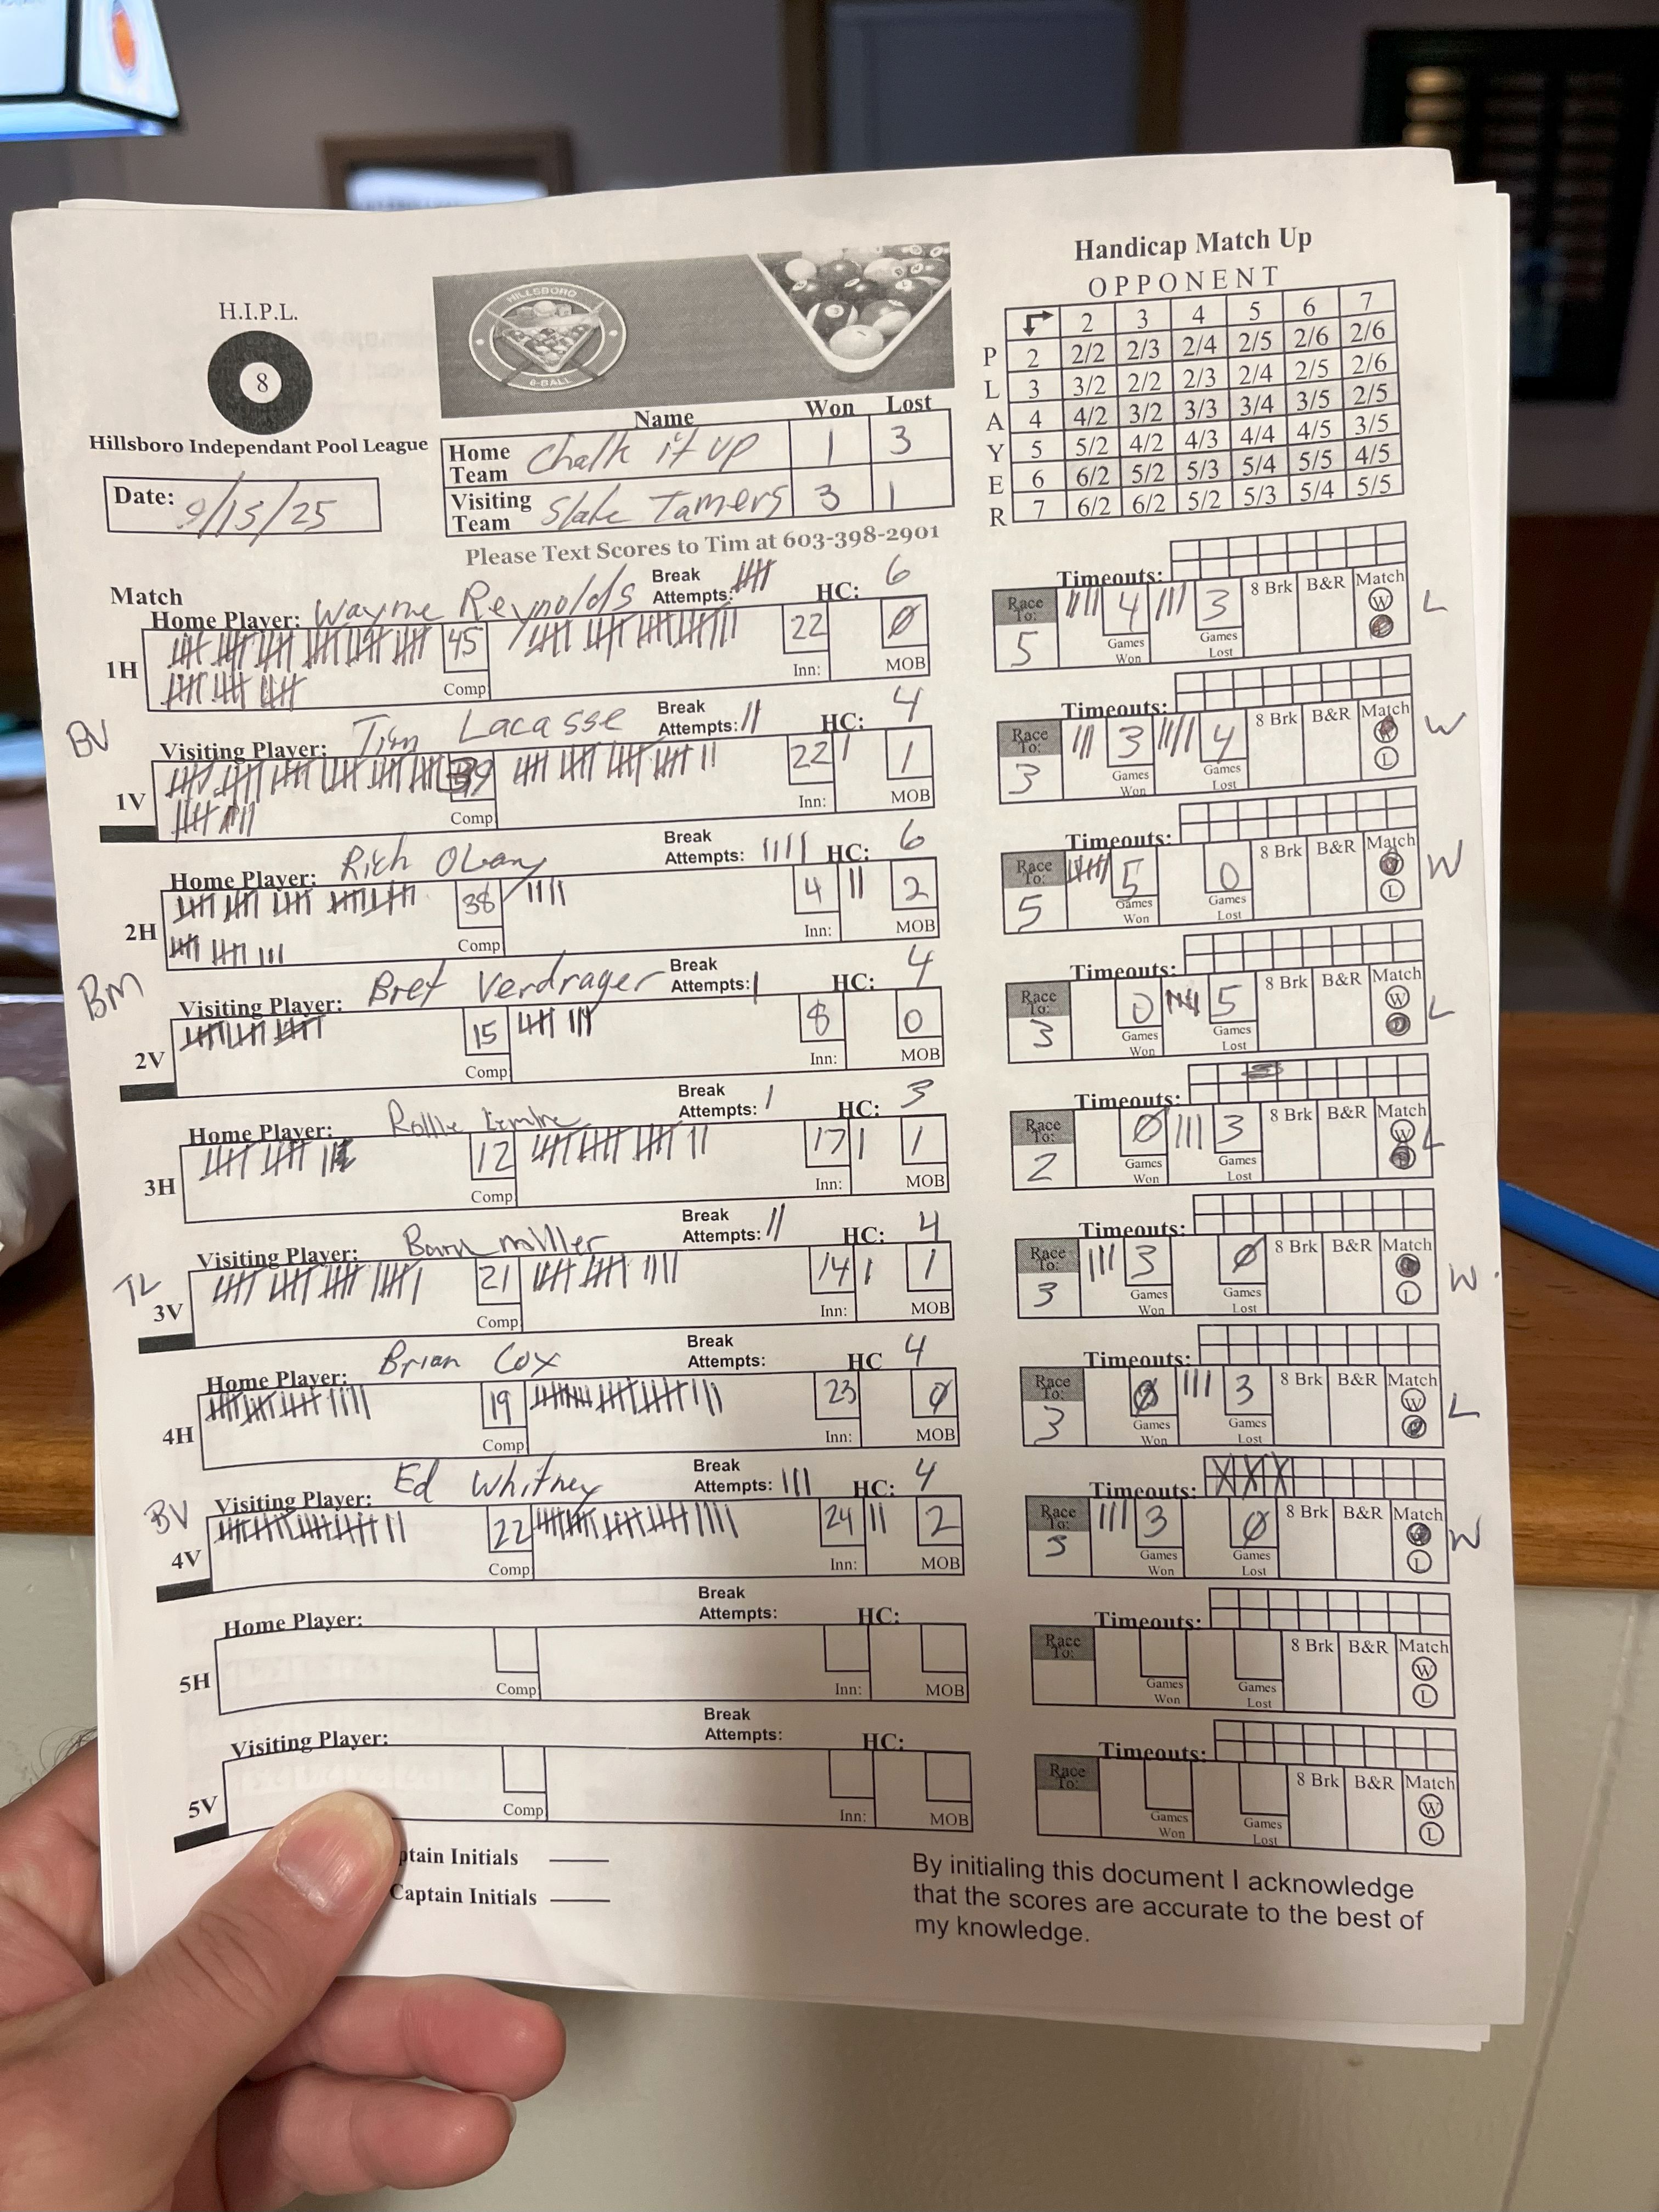 Handicap Match Up
OPPONENT
2 3 4 5 6 7
P 2 2/2 2/3 2/4 2/5 2/6 2/6
L 3 3/2 2/2 2/3 2/4 2/5 2/6
A 4 4/2 3/2 3/3 3/4 3/5 2/5
Y 5 5/2 4/2 4/3 4/4 4/5 3/5
E 6 6/2 5/2 5/3 5/4 5/5 4/5
R 7 6/2 6/2 5/2 5/3 5/4 5/5
H.I.P.L.
8
Hillsboro Independant Pool League
HILLSBORO
8-BALL
Date: 9/15/25
Name Won Lost
Home Team Chalk it up 1 3
Visiting Team Slate Tamers 3 1
Please Text Scores to Tim at 603-398-2901
Match
Home Player: Wayne Reynolds Break Attempts: HC: 6 Timeouts:
1H 45 Comp 22 Inn: 0 MOB Race To: 5 4 Games Won 3 Games Lost 8 Brk B&R Match W L
BV Visiting Player: Tim Lacasse Break Attempts: HC: 4 Timeouts:
1V 39 Comp 22 Inn: 1 MOB Race To: 3 3 Games Won 4 Games Lost 8 Brk B&R Match L W
Home Player: Rich Break Attempts: HC: 6 Timeouts:
2H 38 Comp 4 Inn: 2 MOB Race To: 5 5 Games Won 0 Games Lost 8 Brk B&R Match L W
BM Visiting Player: Bret Verdrager Break Attempts: HC: 4 Timeouts:
2V 15 Comp 8 Inn: 0 MOB Race To: 3 0 Games Won 5 Games Lost 8 Brk B&R Match W L
Home Player: Break Attempts: HC: 3 Timeouts:
3H 12 Comp 17 Inn: 1 MOB Race To: 2 0 Games Won 3 Games Lost 8 Brk B&R Match W L
TL Visiting Player: Break Attempts: HC: 4 Timeouts:
3V 21 Comp 14 Inn: 1 MOB Race To: 3 3 Games Won 0 Games Lost 8 Brk B&R Match L W
Home Player: Brian Cox Break Attempts: HC 4 Timeouts:
4H 19 Comp 23 Inn: 0 MOB Race To: 3 0 Games Won 3 Games Lost 8 Brk B&R Match W L
BV Visiting Player: Ed Whitney Break Attempts: HC: 4 Timeouts: XXX
4V 22 Comp 24 Inn: 2 MOB Race To: 3 3 Games Won 0 Games Lost 8 Brk B&R Match L W
Home Player: Break Attempts: HC: Timeouts:
5H Comp Inn: MOB Race To: Games Won Games Lost 8 Brk B&R Match W L
Visiting Player: Break Attempts: HC: Timeouts:
5V Comp Inn: MOB Race To: Games Won Games Lost 8 Brk B&R Match W L
ptain Initials
Captain Initials
By initialing this document I acknowledge
that the scores are accurate to the best of
my knowledge.